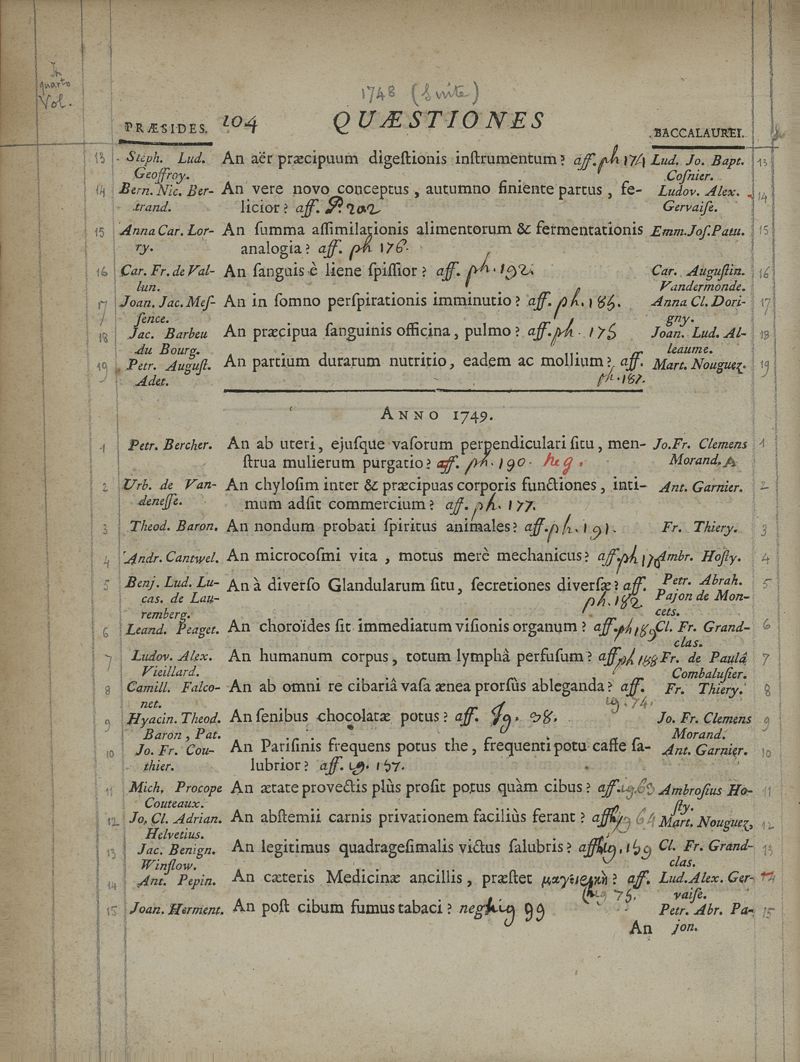 In
quarto
Vol.
1748 (Suite)
PRÆSIDES. 104 QUÆSTIONES BACCALAUREI.
13 Steph. Lud. An aër præcipuum digeſtionis inſtrumentum? aff. ph 174 Lud. Jo. Bapt. 13
Geoffroy. Coſnier.
14 Bern. Nic. Ber- An vere novo conceptus, autumno finiente partus, fe- Ludov. Alex. 14
trand. licior? aff. P. 202 Gervaiſe.
15 Anna Car. Lor- An ſumma aſſimilationis alimentorum & fermentationis Emm. Joſ. Patu. 15
ry. analogia? aff. ph 176.
16 Car. Fr. de Val- An ſanguis è liene ſpiſſior? aff. ph. 192. Car. Auguſtin. 16
lun. Vandermonde.
17 Joan. Jac. Meſ- An in ſomno perſpirationis imminutio? aff. ph. 186. Anna Cl. Dori- 17
ſence. gny.
18 Jac. Barbeu An præcipua ſanguinis officina, pulmo? aff. ph. 175 Joan. Lud. Al- 18
du Bourg. leaume.
19 Petr. Auguſt. An partium durarum nutritio, eadem ac mollium? aff. Mart. Nouguez. 19
Adet. ph. 187.
ANNO 1749.
1 Petr. Bercher. An ab uteri, ejuſque vaſorum perpendiculari ſitu, men- Jo. Fr. Clemens 1
ſtrua mulierum purgatio? aff. ph. 190. Morand.
2 Urb. de Van- An chyloſim inter & præcipuas corporis functiones, inti- Ant. Garnier. 2
deneſſe. mum adſit commercium? aff. ph. 177.
3 Theod. Baron. An nondum probati ſpiritus animales? aff. ph. 191. Fr. Thiery. 3
4 Andr. Cantwel. An microcoſmi vita, motus merè mechanicus? aff. ph Ambr. Hoſty. 4
5 Benj. Lud. Lu- An à diverſo Glandularum ſitu, ſecretiones diverſæ? aff. Petr. Abrah. 5
cas. de Lau- ph. 182. Pajon de Mon-
remberg. cets.
6 Leand. Peaget. An choroïdes ſit immediatum viſionis organum? aff. ph 189 Cl. Fr. Grand- 6
clas.
7 Ludov. Alex. An humanum corpus, totum lymphâ perfuſum? aff. ph 188 Fr. de Paulâ 7
Vieillard. Combaluſier.
8 Camill. Falco- An ab omni re cibariâ vaſa ænea prorſùs ableganda? aff. Fr. Thiery. 8
net. 74.
9 Hyacin. Theod. An ſenibus chocolatæ potus? aff. Jo. Fr. Clemens 9
Baron, Pat. Morand.
10 Jo. Fr. Cou- An Pariſinis frequens potus the, frequenti potu caffe ſa- Ant. Garnier. 10
thier. lubrior? aff. 157.
11 Mich. Procope An ætate provectis plùs proſit potus quàm cibus? aff. Ambroſius Ho- 11
Couteaux. ſty.
12 Jo. Cl. Adrian. An abſtemii carnis privationem faciliùs ferant? aff. 64 Mart. Nouguez, 12
Helvetius.
13 Jac. Benign. An legitimus quadrageſimalis victus ſalubris? aff. 159 Cl. Fr. Grand- 13
Winſlow. clas.
14 Ant. Pepin. An cæteris Medicinæ ancillis, præſtet μαγειρικὴ? aff. Lud. Alex. Ger- 14
75. vaiſe.
15 Joan. Herment. An poſt cibum fumus tabaci? neg. 99 Petr. Abr. Pa- 15
An jon.